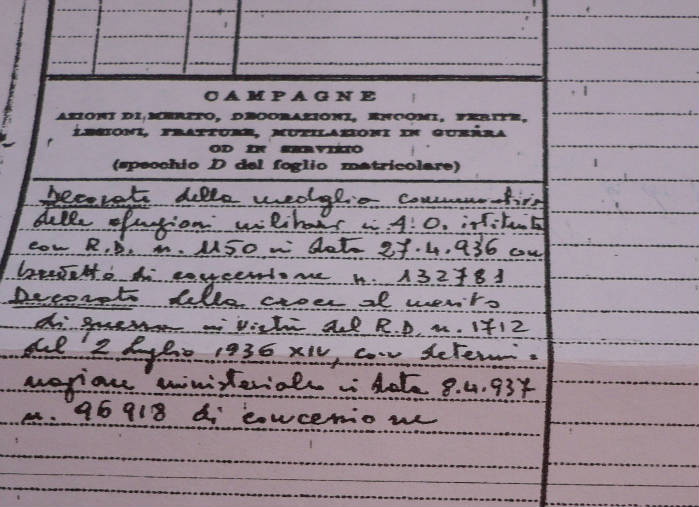 CAMPAGNE
AZIONI DI MERITO, DECORAZIONI, ENCOMI, FERITE,
LESIONI, FRATTURE, MUTILAZIONI IN GUERRA
OD IN SERVIZIO
(specchio D del foglio matricolare)
Decorato della medaglia commemorativa
delle operazioni militari in A.O. istituita
con R.D. n. 1150 in data 27.4.936 con
brevetto di concessione n. 132781
Decorato della croce al merito
di guerra in virtù del R.D. n. 1712
del 2 luglio 1936 XIV, con determi=
nazione ministeriale in data 8.4.937
n. 96918 di concessione